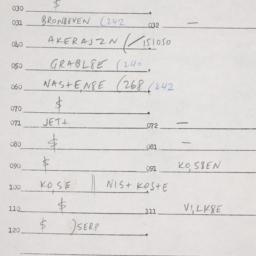 030 $
031 BRONBEVEN (242 032 —
040 AKERAJZN (/151050
050 GRABL8E (240
060 NASTEN8E (268 (242
070 $
071 JET+ 072 —
080 $ 081 —
090 $ 091 KO,S8EN
100 KO,SE || NIS+ KOS+E
110 $ 111 VI,LK8E
120 $ )SERP